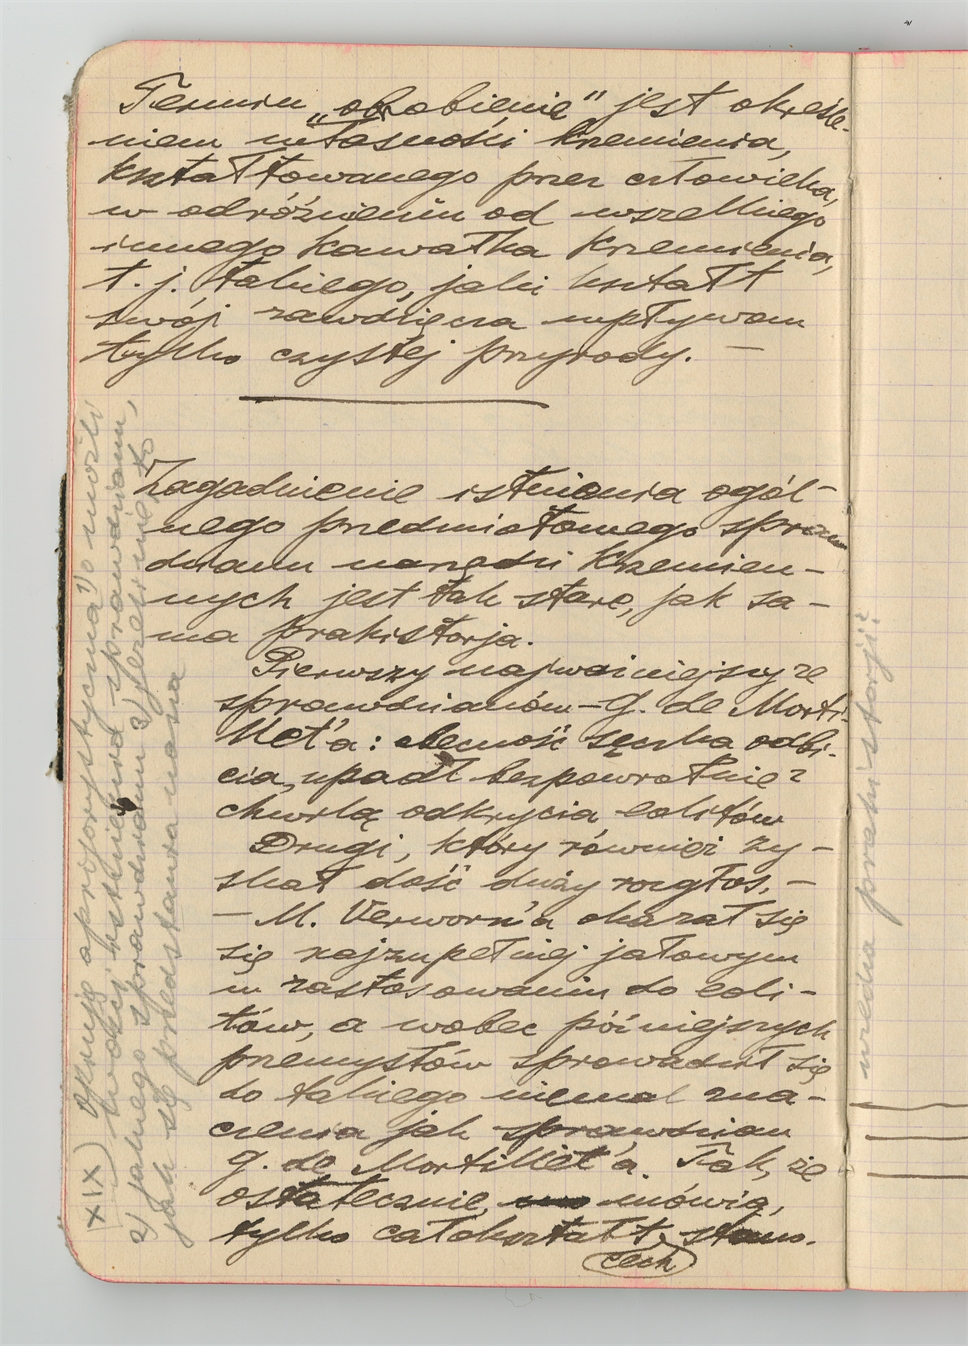 Termin „obrobienie" jest określe-
niem własności krzemienia,
kształtowanego przez człowieka,
w odróżnieniu od wszelkiego
innego kawałka krzemienia,
t. j. takiego, jaki kształt
swój zawdzięcza wpływom
tylko czystej przyrody. —
Zagadnienie istnienia ogól-
nego przedmiotowego spraw
dzianu narzędzi krzemien-
nych jest tak stare, jak sa-
ma prahistorja.
Pierwszy najważniejszy ze
sprawdzianów – G. de Morti-
llet'a: obecność sęczka odbi-
cia, upadł bezpowrotnie z
chwilą odkrycia eolitów
Drugi, który również zy-
skał dość duży rozgłos, —
— M. Verworn'a okazał się
się najzupełniej jałowym
w zastosowaniu do eoli-
tów, a wobec późniejszych
przemysłów sprowadził się
do takiego niemal zna-
czenia jak sprawdzian
G. de Mortillet'a. Tak, że
ostatecznie mówią,
tylko całokształt
cech
XIX) 1) o możli
twości istnienia sprawdzianu,
2) jakiego sprawdzianu 3)
jak się przedstawia nasza
wiedza prahistorji?